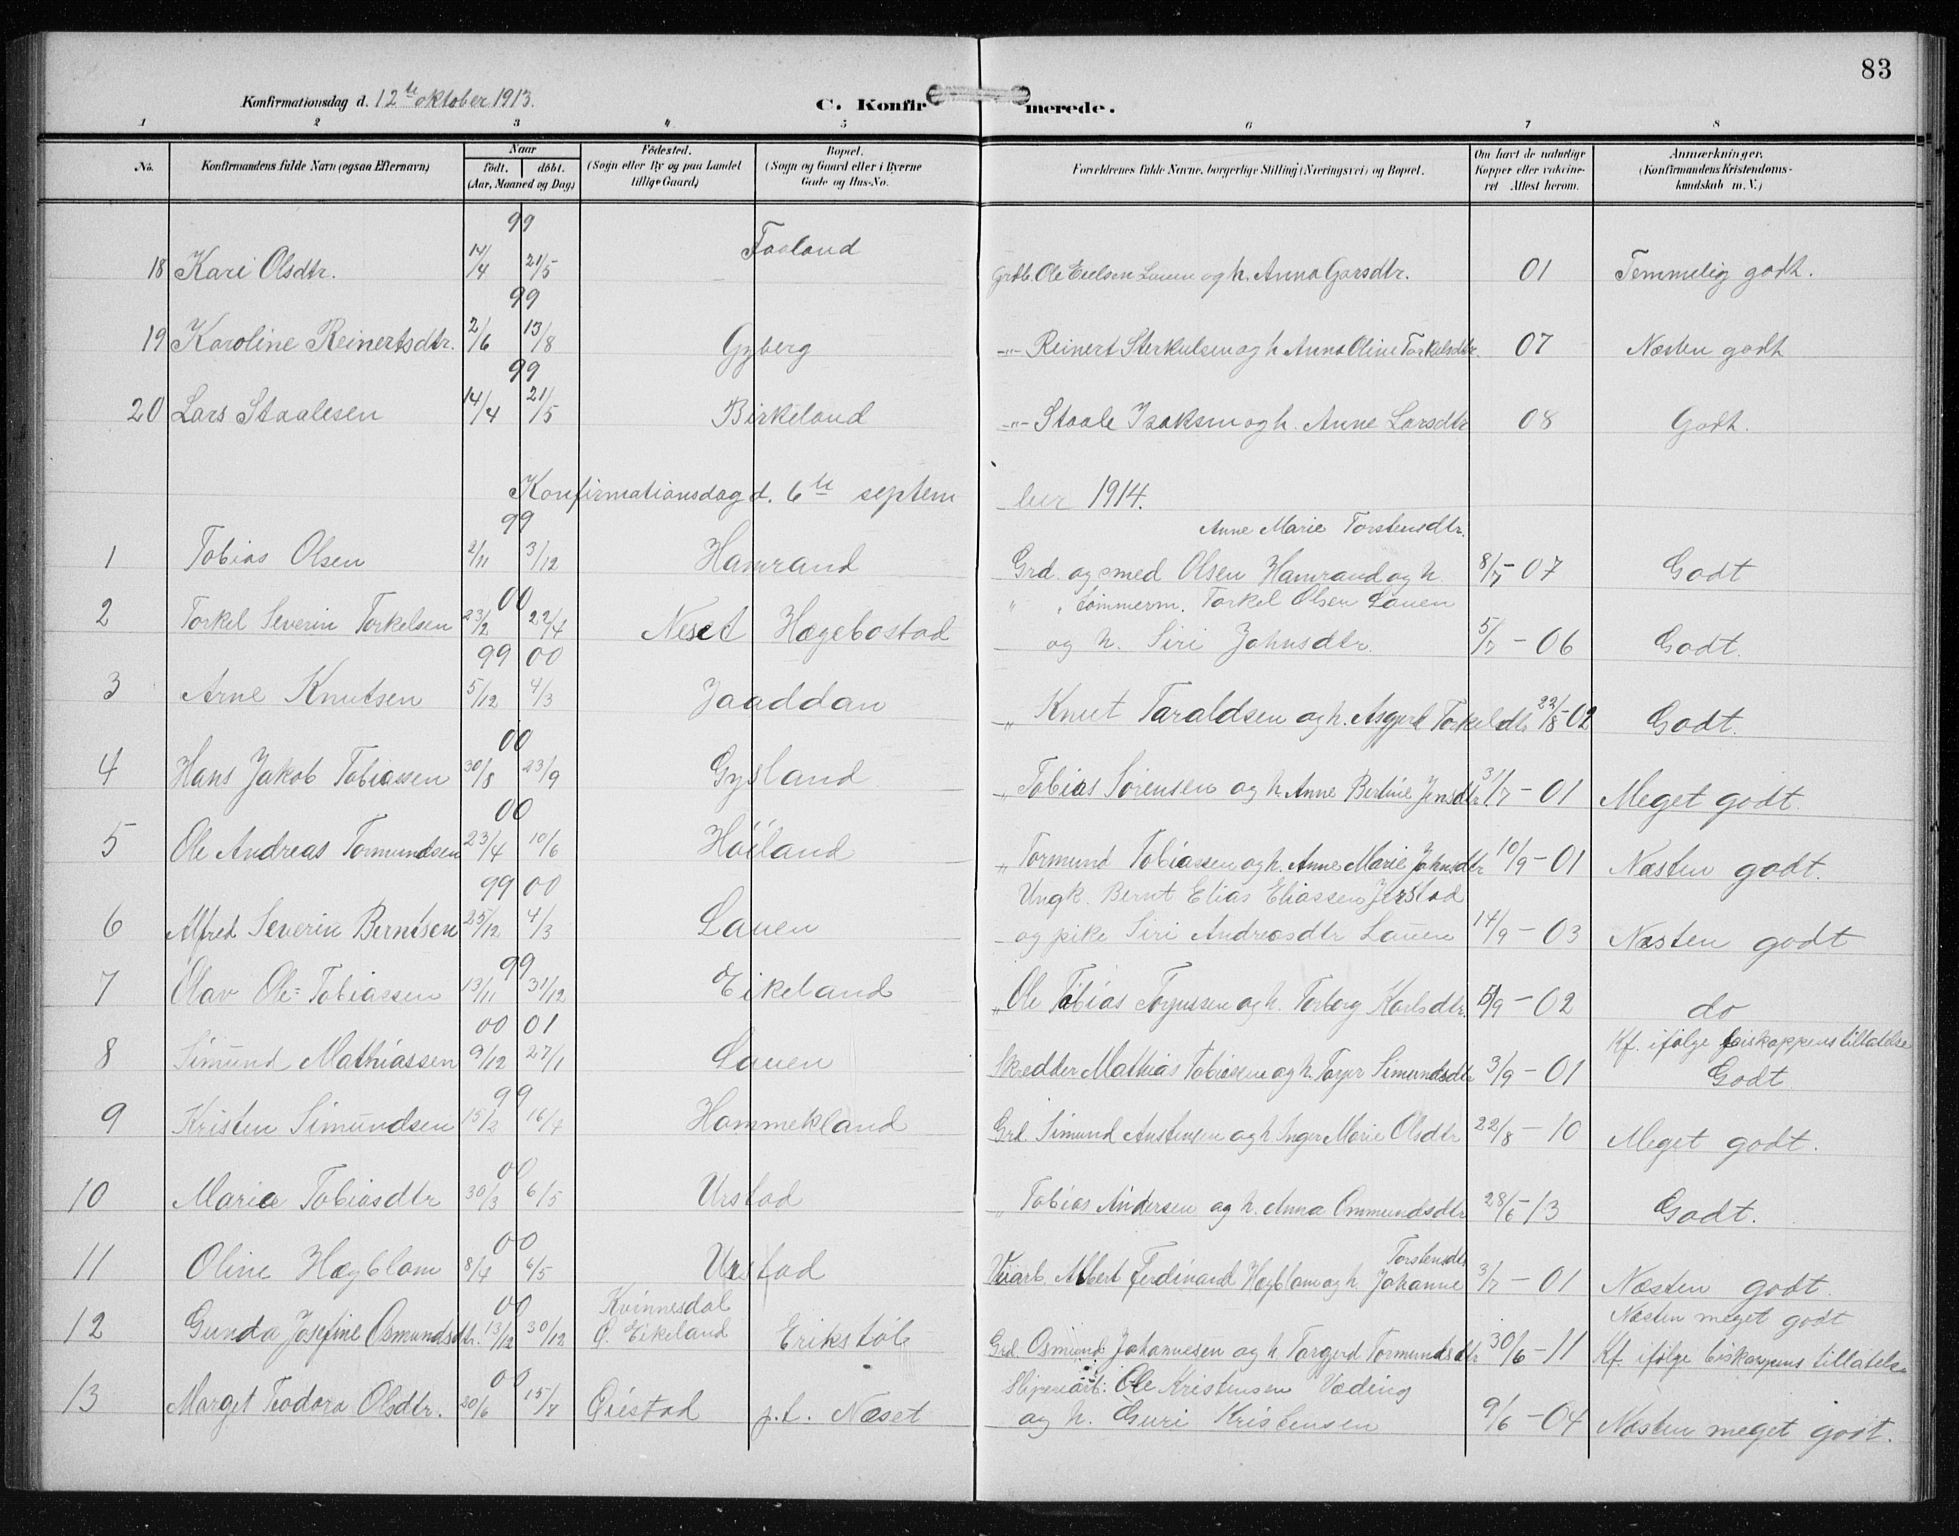 83
Konfirmationsdag d. 12te oktober 1913.
C. Konfirmerede.
1 2 3 4 5 6 7 8
No. Konfirmandens fulde Navn (ogsaa Efternavn) Naar født. døbt. (Aar, Maaned og Dag) Fødested. (Sogn eller By og paa Landet tillige Gaard) Bopæl. (Sogn og Gaard eller i Byerne Gade og Hus-No. Forældrenes fulde Navne, borgerlige Stilling (Næringsvei) og Bopæl. Om havt de naturlige Kopper eller vakcineret Attest herom. Anmærkninger. (Konfirmandens Kristendomskundskab m. V.)
99
18 Kari Olsdtr. 14/4 21/5 Faaland Grdb. Ole Lauen og h. Anna 01 Temmelig godt.
99
19 Karoline Reinertsdtr. 2/6 13/8 Gyberg -"- Reinert og h. Anna Oline Torkelsdtr. 07 Næsten godt
99
20 Lars Staalesen 14/4 21/5 Birkeland -"- Staale Isaksen og h. Anne Larsdtr 08 Godt.
Konfirmationsdag d. 6te september 1914.
99 Anne Marie Torstensdtr.
1 Tobias Olsen 2/11 3/12 Hamrand Grd. og smed Olsen Hamrand og h. 8/7-07 Godt
00 " Tømmerm. Torkel Olsen Lauen
2 Torkel Severin Torkelsen 23/2 22/4 Neset Hægebostad og h. Siri Johnsdtr. 5/7-06 Godt.
99 00
3 Arne Knutsen 5/12 4/3 Jaaddan " Knut Taraldsen og h. Asgjerd Torkeldtr 22/8-02 Godt.
00
4 Hans Jakob Tobiassen 30/8 23/9 Gysland " Tobias Sørensen og h. Anne Bertine Jensdtr 31/7-01 Meget godt.
00
5 Ole Andreas Tormundsen 23/4 10/6 Høiland " Tormund Tobiassen og h. Anne Marie Johnsdtr 10/9-01 Næsten godt.
99 00 Ungk. Bernt Elias Eliassen Jerstad
6 Alfred Severin Berntsen 25/12 4/3 Lauen og pike Siri Andreasdtr Lauen 14/9-03 Næsten godt
99
7 Olav Ole Tobiassen 13/11 31/12 Eikeland " Ole Tobias Torjussen og h. Torborg Karlsdtr. /9-02 do
00 01 Kf. ifølge biskoppens tillatelse
8 Simund Mathiassen 9/12 27/1 Lauen Skredder Mathias Tobiassen og h. Simundsdtr 3/9-01 Godt
99
9 Kristen Simundsen 15/2 16/4 Hammekland Grd. Simund Austensen og h Inger Marie Olsdtr 22/8-10 Meget godt.
00
10 Marie Tobiasdtr 30/3 6/5 Urstad " Tobias Andersen og h. Anna Ommundsdtr 28/6-13 Godt.
00 Torstensdtr
11 Oline Hægblom 8/4 6/5 Urstad Veiarb. Albert Ferdinand Hægblom og h. Johanne 3/7-01 Næsten godt.
00 Kvinnesdal Næsten meget godt
12 Gunda Josefine Osmundsdtr. 13/12 30/12 G. Eikeland Erikstøl Grd. Osmund Johannesen og h. Torgjerd Tormundsdtr 30/6-11 Kf. ifølge biskoppens tillatelse
00 Sliperiarb. Ole Kristensen Væding
13 Marget Teodora Olsdtr. 20/6 15/7 p.t. Næset og h. Guri Kristensen 9/6-04 Næsten meget godt.